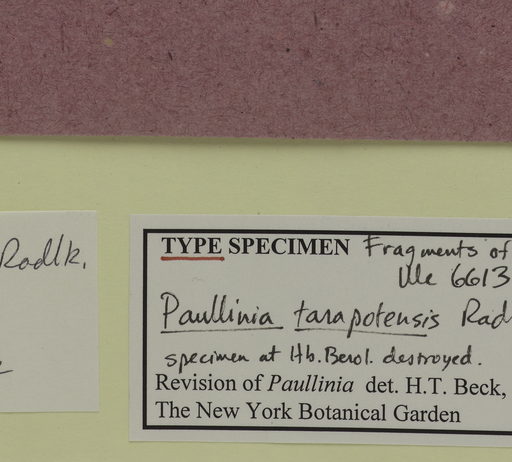 Radlk.
TYPE SPECIMEN Fragments of
Ule 6613
Paullinia tarapotensis Rad
specimen at Hb. Berol. destroyed.
Revision of Paullinia det. H.T. Beck,
The New York Botanical Garden